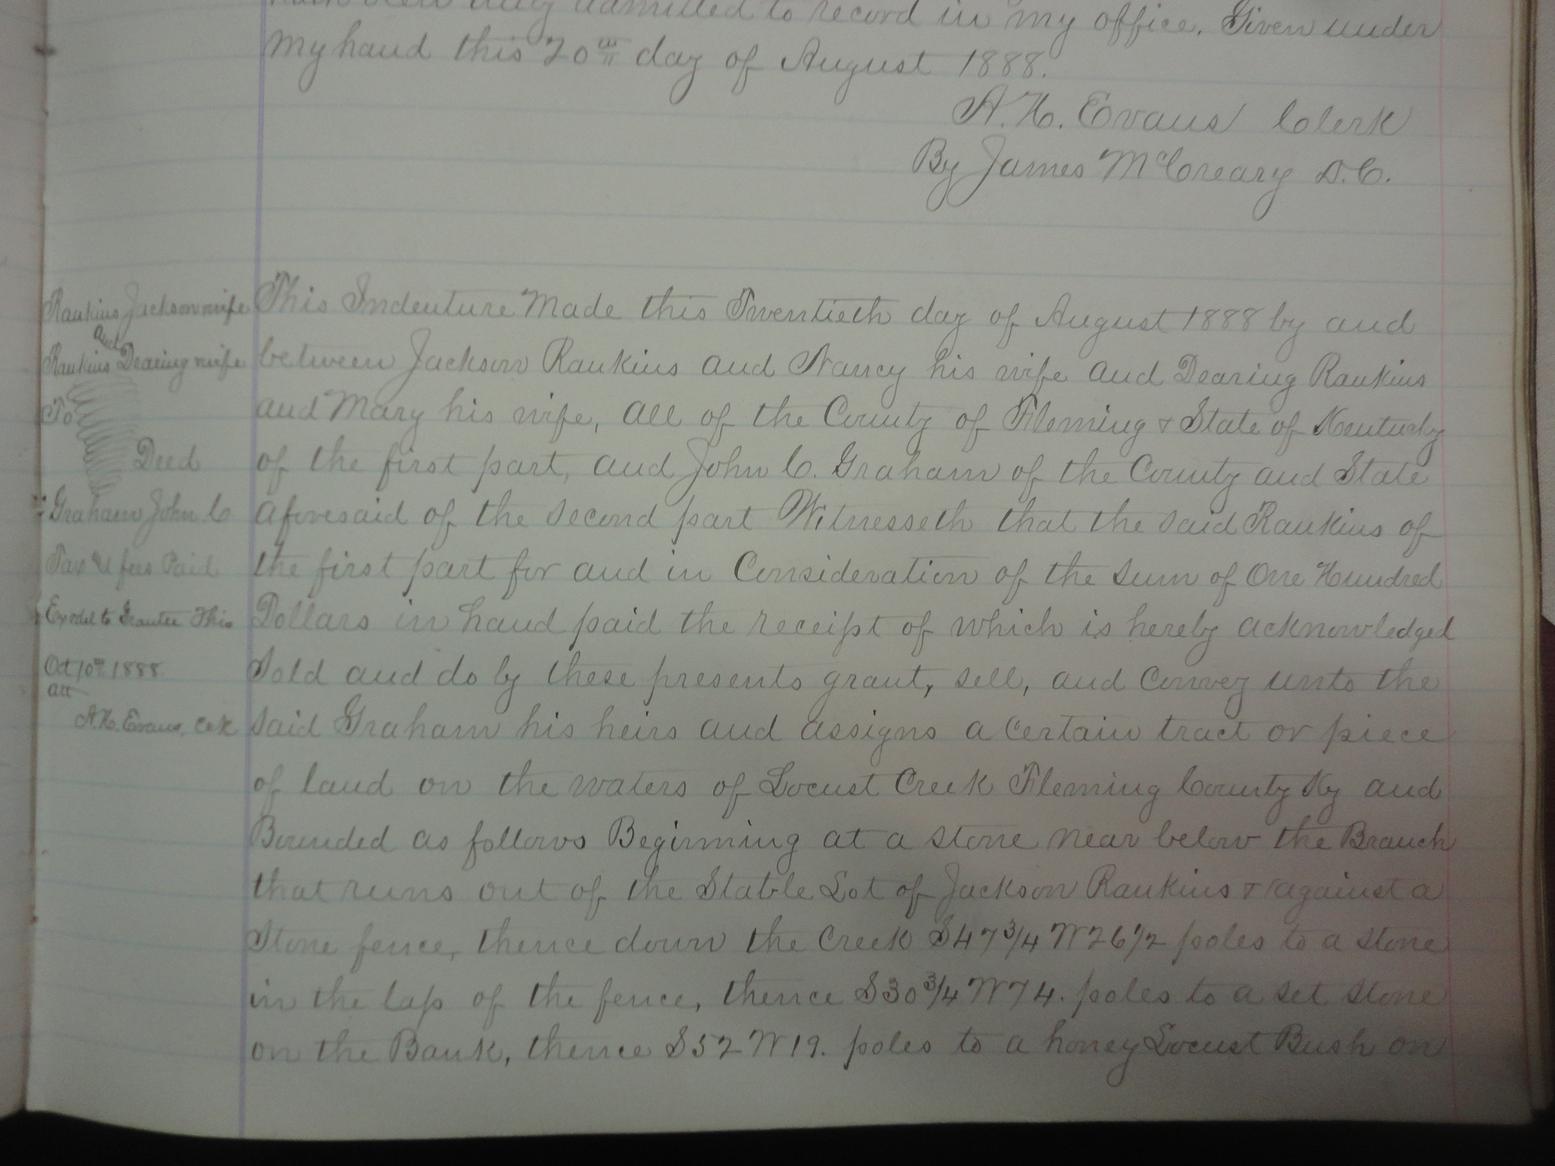 hath been duly admitted to record in my office. Given under
my hand this 20th day of August 1888.
A. H. Evans Clerk
By James McCreary D.C.
Rankins Jackson wife
and
Rankins Dearing wife
To
Deed
Graham John C
Tax & fees Paid
Exodel to Grantee This
Oct 10th 1888.
att
A.H. Evans, Cek
This Indenture Made this Twentieth day of August 1888 by and
between Jackson Rankins and Nancy his wife and Dearing Rankins
and Mary his wife, all of the County of Fleming & State of Kentucky
of the first part, and John C. Graham of the County and State
aforesaid of the second part Witnesseth that the said Rankins of
the first part for and in Consideration of the sum of One Hundred
Dollars in hand paid the receipt of which is hereby acknowledged
Sold and do by these presents grant, sell, and Convey unto the
said Graham his heirs and assigns a certain tract or piece
of land on the waters of Locust Creek Fleming County Ky and
Bounded as follows Beginning at a stone near below the Branch
that runs out of the Stable Lot of Jackson Rankins & against a
Stone fence, thence down the Creek S 47 3/4 W 26 1/2 poles to a stone
in the lap of the fence, thence S 30 3/4 W 74. poles to a set stone
on the Bank, thence S 52 W 19. poles to a honey Locust Bush on